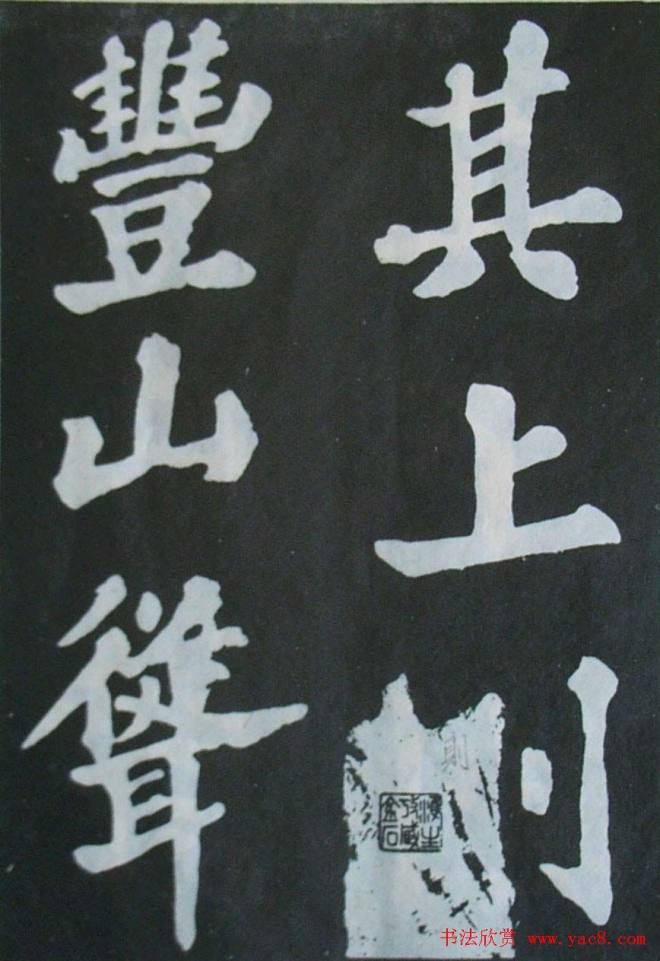 其上則
豐山聳
书法欣赏 www.yac8.com